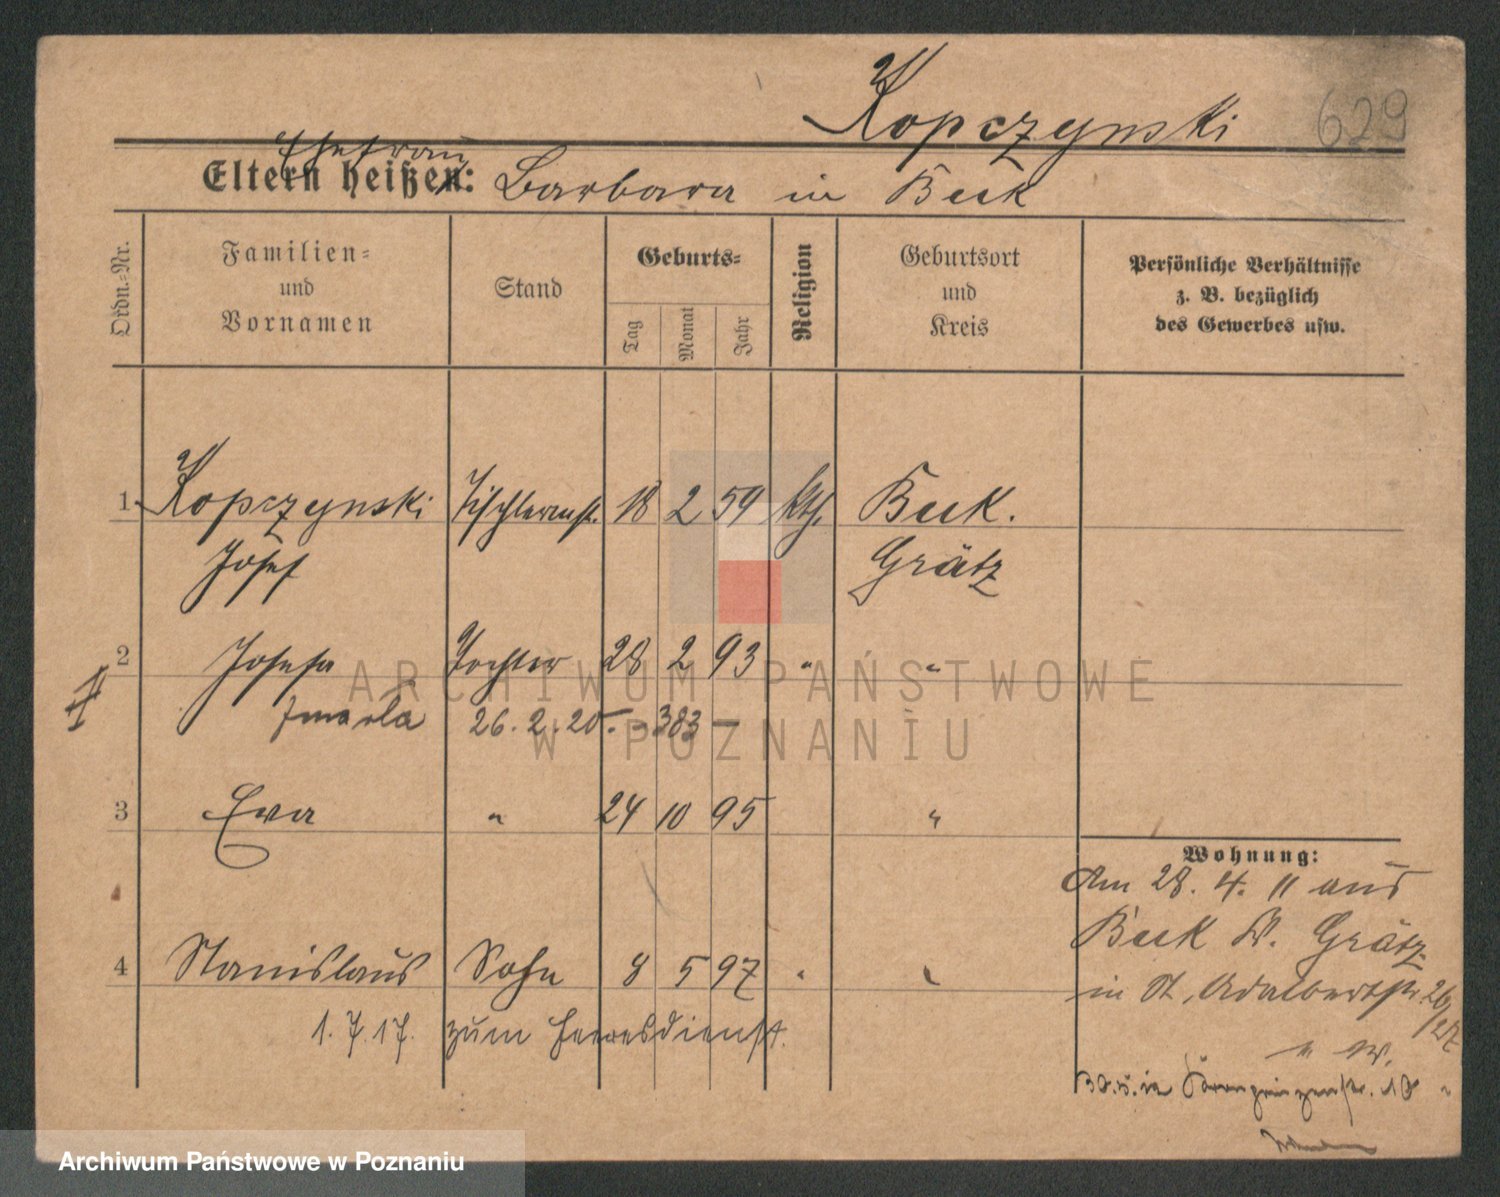 Kopczynski 629
Ehefrau
Eltern heißen: Barbara in Buk
Ordn.-Nr.
Familien-
und
Vornamen
Stand
Geburts-
Tag
Monat
Jahr
Religion
Geburtsort
und
Kreis
Persönliche Verhältnisse
z. B. bezüglich
des Gewerbes usw.
1 Kopczynski Tischlermst. 18 2 59 kth. Buk.
Josef Grätz
2 Josefa Tochter 28 2 93 " "
zmarła 26.2.20. - 383 -
3 Eva " 24 10 95 "
4 Stanislaus Sohn 8 5 97 " "
1.7.17. zum Heeresdienst.
Wohnung:
Am 28. 4. 11 aus
Buk W. Grätz
in St. Adalbertstr. 26/27
30.5. in Kronprinzenstr. 10
ARCHIWUM PAŃSTWOWE
W POZNANIU
Archiwum Państwowe w Poznaniu